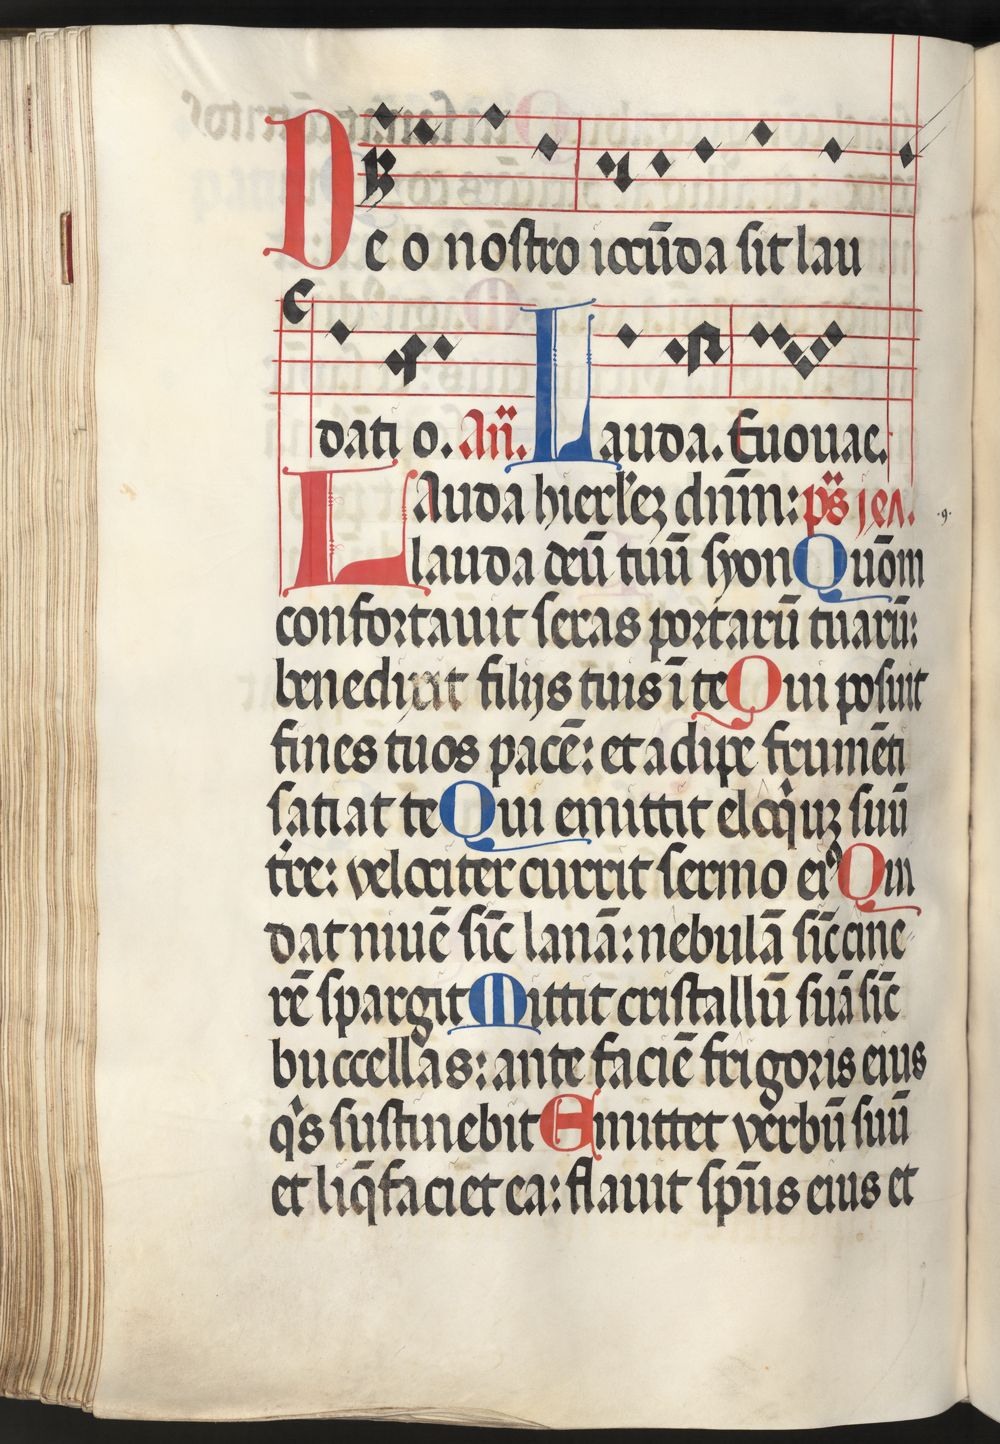 De o nostro iocūda sit lau
dati o. Añ. Lauda. Euouae.
Lauda hierl'ez dnm̄: ps̄
lauda deū tuū syon Quōm
confortauit seras portarū tuarū:
benedixit filijs tuis ī te Qui posuit
fines tuos pacē: et adipe frumēti
satiat te Qui emittit eloq'uꝫ suū
t're: velociter currit sermo ei⁹ Qui
dat niuē sic̄ lanā: nebulā sic̄ cine
rē spargit Mittit cristallū suā sic̄
buccellas: ante faciē frigoris eius
q's sustinebit Emittet verbū suū
et liq̄faciet ea: flauit sp̄us eius et